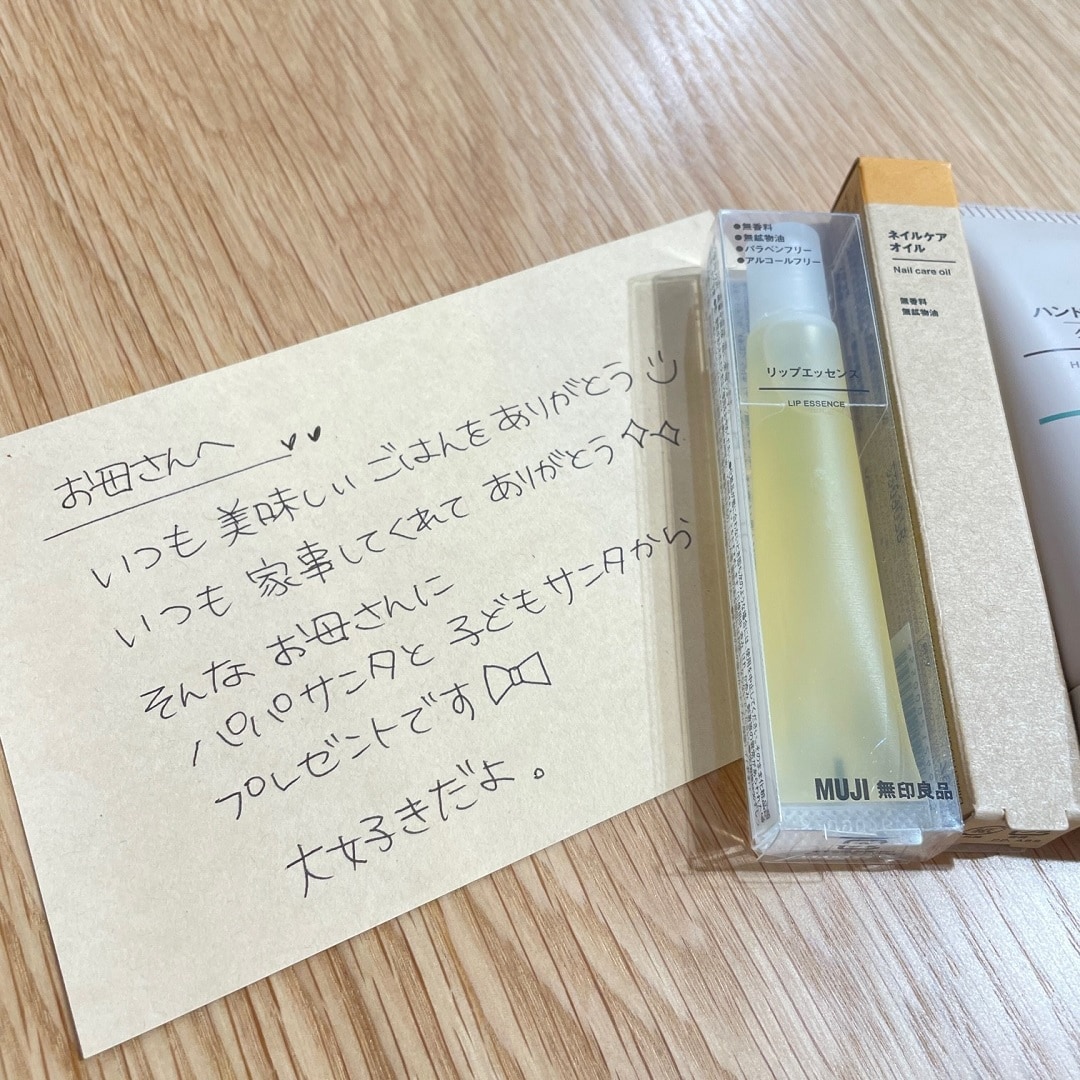 お母さんへ
いつも美味しいごはんをありがとう
いつも家事してくれてありがとう
そんなお母さんに
パパサンタと子どもサンタから
プレゼントです
大好きだよ。
●無香料
●無鉱物油
●パラベンフリー
●アルコールフリー
リップエッセンス
LIP ESSENCE
MUJI 無印良品
ネイルケア
オイル
Nail care oil
無香料
無鉱物油
ハンド